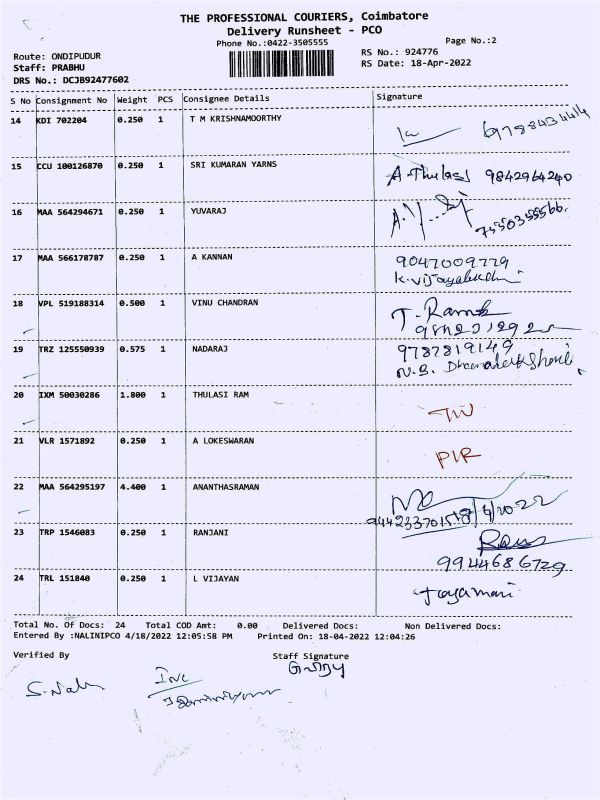 THE PROFESSIONAL COURIERS, Coimbatore
Delivery Runsheet - PCO
Phone No.:0422-3505555
Page No.:2
Route: ONDIPUDUR
RS No.: 924776
Staff: PRABHU
RS Date: 18-Apr-2022
DRS No.: DCJB92477602
S No Consignment No Weight PCS Consignee Details Signature
14 KDI 702204 0.250 1 T M KRISHNAMOORTHY
15 CCU 100126870 0.250 1 SRI KUMARAN YARNS A.Thulasi 9842964240
16 MAA 564294671 0.250 1 YUVARAJ 7550355566.
17 MAA 566178787 0.250 1 A KANNAN 9047009779
18 VPL 519188314 0.500 1 VINU CHANDRAN T. Ramesh
19 TRZ 125550939 0.575 1 NADARAJ 9787819149
N.B.
20 IXM 50030286 1.800 1 THULASI RAM
21 VLR 1571892 0.250 1 A LOKESWARAN PIR
22 MAA 564295197 4.400 1 ANANTHASRAMAN
23 TRP 1546083 0.250 1 RANJANI
9944686729
24 TRL 151840 0.250 1 L VIJAYAN Jayamani
Total No. Of Docs: 24 Total COD Amt: 0.00 Delivered Docs: Non Delivered Docs:
Entered By :NALINIPCO 4/18/2022 12:05:58 PM Printed On: 18-04-2022 12:04:26
Verified By
Staff Signature